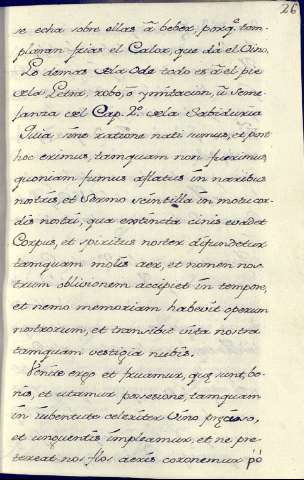 26
se echa sobre ellas à beber, porq.e tem-
plaran frias el Calor, que dà el Vino.
Lo demas de la Ode todo es à el pie
de la Letra, robo, ò ymitacion, ù Seme-
janza del Cap. 2.º de la Sabiduria
Quia, sine ratione nati sumus, et post
hoc erimus, tamquam non fuerimus
quoniam fumus aflatus in naribus
nostris, et Sermo scintilla in motu cor-
dis nostri, qua extincta cinis erit
Corpus, et spiritus noster difundetur
tamquam molis aer, et nomen nos-
trum oblivionem accipiet in tempore,
et nemo memoriam habevit operum
nostrorum, et transibit vita nostra
tamquam vestigia nubis.
Venite ergo et fruamur, quæ sunt, bo-
nis, et utamur posesione, tamquam
in iubentute celeriter Vino precioso,
et unguentis impleamur, et ne pre-
tereat nos flos aeris coronemur